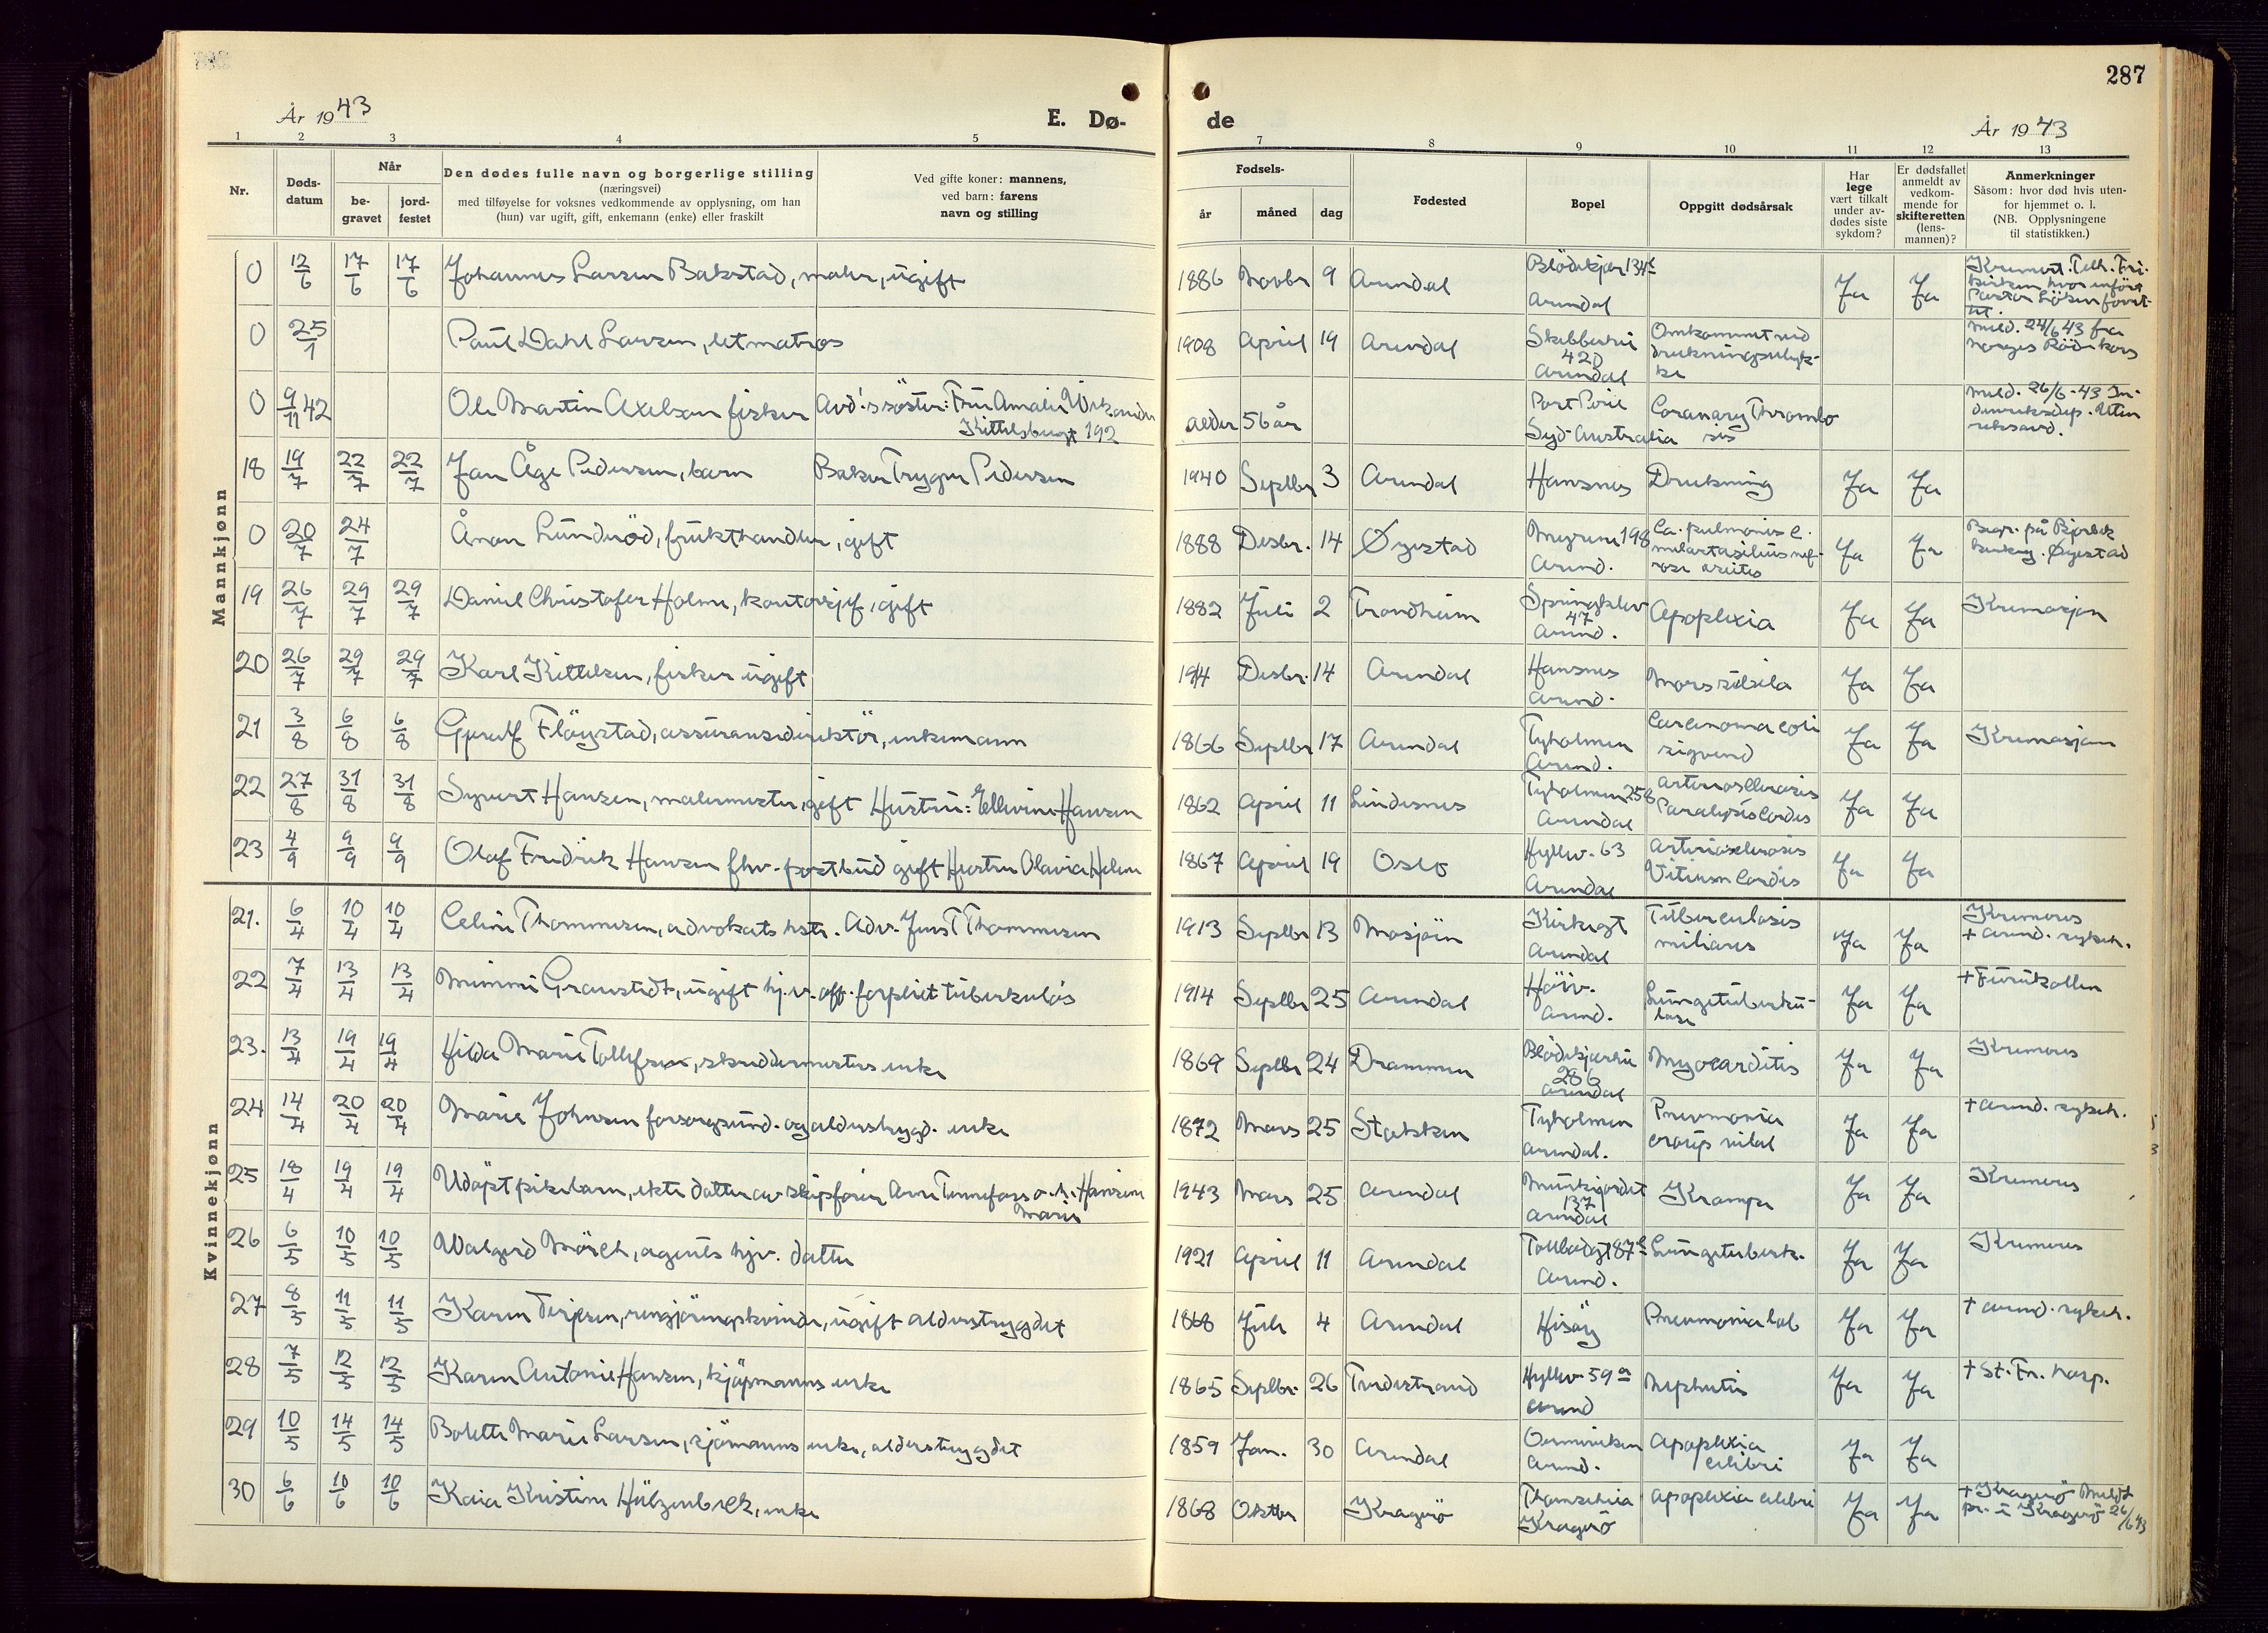 287
År 1943
E. Dø-
de
År 1943
1 2 3 4 5 7 8 9 10 11 12 13
Nr.
Døds-
datum
Når
be-
gravet
jord-
festet
Den dødes fulle navn og borgerlige stilling
(næringsvei)
med tilføyelse for voksnes vedkommende av opplysning, om han
(hun) var ugift, gift, enkemann (enke) eller fraskilt
Ved gifte koner: mannens,
ved barn: farens
navn og stilling
Fødsels-
år
måned
dag
Fødested
Bopel
Oppgitt dødsårsak
Har
lege
vært tilkalt
under av-
dødes siste
sykdom?
Er dødsfallet
anmeldt av
vedkom-
mende for
skifteretten
(lens-
mannen)?
Anmerkninger
Såsom: hvor død hvis uten-
for hjemmet o. l.
(NB. Opplysningene
til statistikken.)
Mannkjønn
0 12/6 17/6 17/6 Johannes Larsen Bakstad, maler, ugift 1886 Novbr 9 Arendal Blödekjær 134 Arendal Ja Ja
0 25/1 Paul Dahl Larsen, letmatros 1908 April 19 Arendal 420 Arendal Omkommet ved drukningsulyk-ke meld. 24/6 43 fra Norges Röde kors
0 9/11 42 Ole Martin Axelsen fisker Avd's söster: Fru Amalie Kittelsbugt 192 alder 56 år Port Pirie Syd-Australia Coronary Thrombosis meld. 26/6-43
18 19/7 22/7 22/7 Jan Åge Pedersen, barn Baker Trygve Pedersen 1940 Septbr 3 Arendal Hansnes Drukning Ja Ja
0 20/7 24/7 Ånon Lunderöd, frukthandler, gift 1888 Desbr. 14 Øyestad Myrene 198 Arend. Ca. pulmonis Ja Ja Begr. på Bjorbek Øyestad
19 26/7 29/7 29/7 Daniel Christofer Holm, kontorsjef, gift 1882 Juli 2 Trondheim Springklev 47 Arend. Apoplexia Ja Ja Kremasjon
20 26/7 29/7 29/7 Karl Kittelsen, fisker ugift 1914 Desbr. 14 Arendal Hansnes Arend. Mors Ja Ja
21 3/8 6/8 6/8 Flöystad, assuransedirektör, enkemann 1866 Septbr 17 Arendal Tyholmen Arend. Carcinoma coli Ja Ja Kremasjon
22 27/8 31/8 31/8 Syvert Hansen, malermester, gift Hustru: Ellevine Hansen 1862 April 11 Lindesnes Tyholmen 258 Arendal Paralysis Cordis Ja Ja
23 4/9 9/9 9/9 Olaf Fredrik Hansen fhv. postbud gift Hustru Olavia Helene 1867 April 19 Oslo Hyllev. 63 Arendal Vitium Cordis Ja Ja
Kvinnekjønn
21. 6/4 10/4 10/4 Celine Thommesen, advokats hstr. Adv. Jens T Thommesen 1913 Septbr 13 Mosjöin Kirkegt Arendal Tuberculosis miliaris Ja Ja Kremeres + Arend. sykeh.
22 7/4 13/4 13/4 Mimmi Granstedt, ugift hj. v. off. forpliet tuberkulös 1914 Septbr 25 Arendal Höiv. Arend. Lungetuberku-lose Ja Ja + Furukollen
23. 13/4 19/4 19/4 Hilda Marie Tollefsen, skreddermesters enke 1869 Septbr 24 Drammen 286 Arendal Myocarditis Ja Ja Kremeres
24 14/4 20/4 20/4 Marie Johnsen forsorgsund. og alderstrygd. enke 1872 Mars 25 Stokken Tyholmen Arendal. Pneumonia Ja Ja + Arend. sykeh.
25 18/4 19/4 19/4 Udöpt pikebarn, ekte datter av skipförer Arne Tennefoss o. h. Marie Hansine 1943 Mars 25 Arendal Munkegordet 137 Arendal Krampe Ja Ja Kremeres
26 6/5 10/5 10/5 Valgerd Mörch, agents hjv. datter 1921 April 11 Arendal Tollbodgt 87 Arend. Lungetuberk. Ja Ja Kremeres
27 8/5 11/5 11/5 Karen Terjesen, rengjöringskvinde, ugift alderstrygdet 1868 Juli 4 Arendal Hisöy Pneumonia lob Ja Ja + Arend. sykeh.
28 7/5 12/5 12/5 Karen Antonie Hansen, kjöpmanns enke 1865 Septbr. 26 Tvedestrand Hyllev. 59 a Arend Nephritis Ja Ja + St. Fr. hosp.
29 10/5 14/5 14/5 Bolette Marie Larsen, sjömanns enke, alderstrygdet 1859 Jan. 30 Arendal Arend. Apoplexia celibri Ja Ja
30 6/6 10/6 10/6 Kaia Kristine Hülzenbeck, enke 1868 Oktbr Kragerö Kragerö Apoplexia celibri Ja Ja + Kragerö Meldt pr. i Kragerö 26/6 43